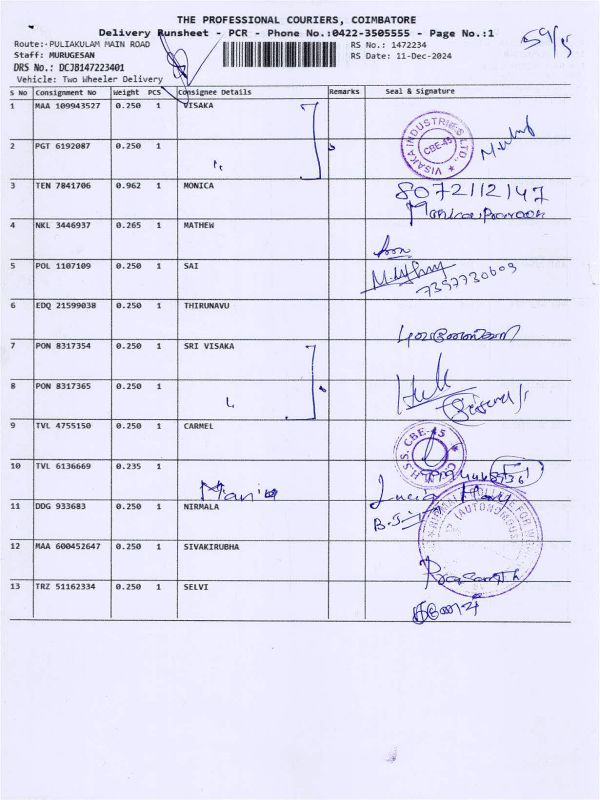 THE PROFESSIONAL COURIERS, COIMBATORE
Delivery Runsheet - PCR - Phone No.:0422-3505555 - Page No.:1
59/5
Route: PULIAKULAM MAIN ROAD RS No.: 1472234
Staff: MURUGESAN RS Date: 11-Dec-2024
DRS No.: DCJB147223401
Vehicle: Two Wheeler Delivery
S No Consignment No Weight PCS Consignee Details Remarks Seal & Signature
1 MAA 109943527 0.250 1 VISAKA
VISAKA INDUSTRIES LTD., CBE-45
2 PGT 6192087 0.250 1 "
3 TEN 7841706 0.962 1 MONICA 8072112147
4 NKL 3446937 0.265 1 MATHEW
5 POL 1107109 0.250 1 SAI 7397730609
6 EDQ 21599038 0.250 1 THIRUNAVU
7 PON 8317354 0.250 1 SRI VISAKA
8 PON 8317365 0.250 1 "
9 TVL 4755150 0.250 1 CARMEL
H.S.S. CBE-45
10 TVL 6136669 0.235 1
11 DDG 933683 0.250 1 NIRMALA
(AUTONOMOUS)
12 MAA 600452647 0.250 1 SIVAKIRUBHA
13 TRZ 51162334 0.250 1 SELVI